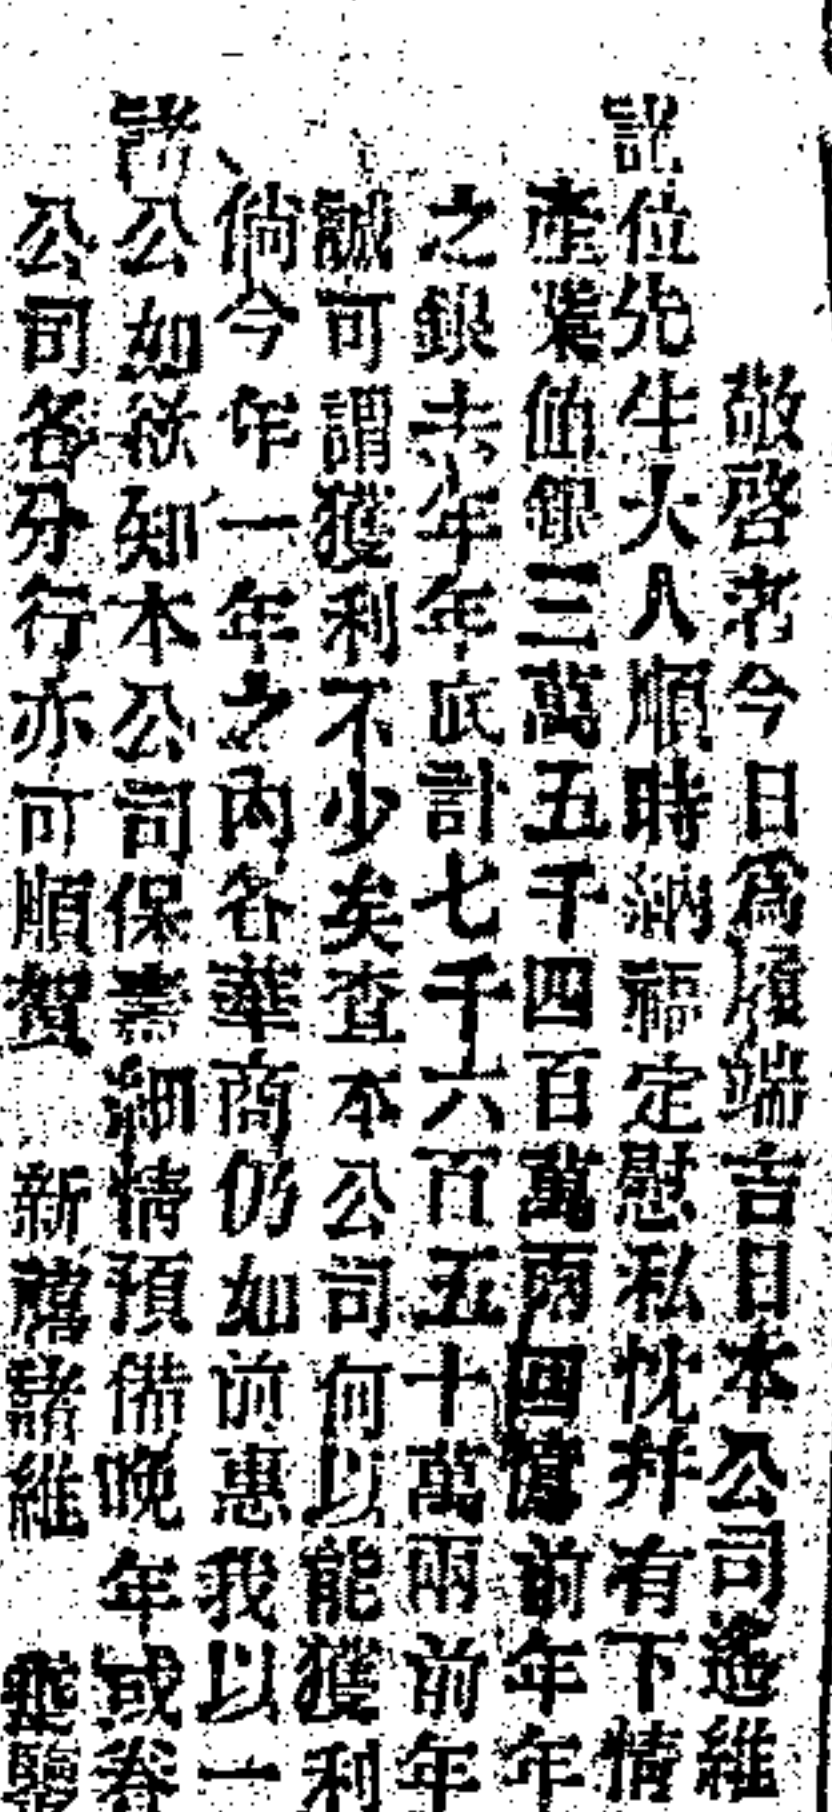 敬啓者今日爲履端吉日本公司遙維
諸位先生大人順時納福定慰私忱幷有下情
產業値銀三萬五千四百萬兩回憶前年年
之銀去年年底計七千六百五十萬兩前年
誠可謂獲利不少矣查本公司何以能獲利
倘今年一年之內各華商仍如前惠我以一
諸公如欲知本公司保壽細情預備晚年或眷
公司各分行亦可順賀 新禧諸維